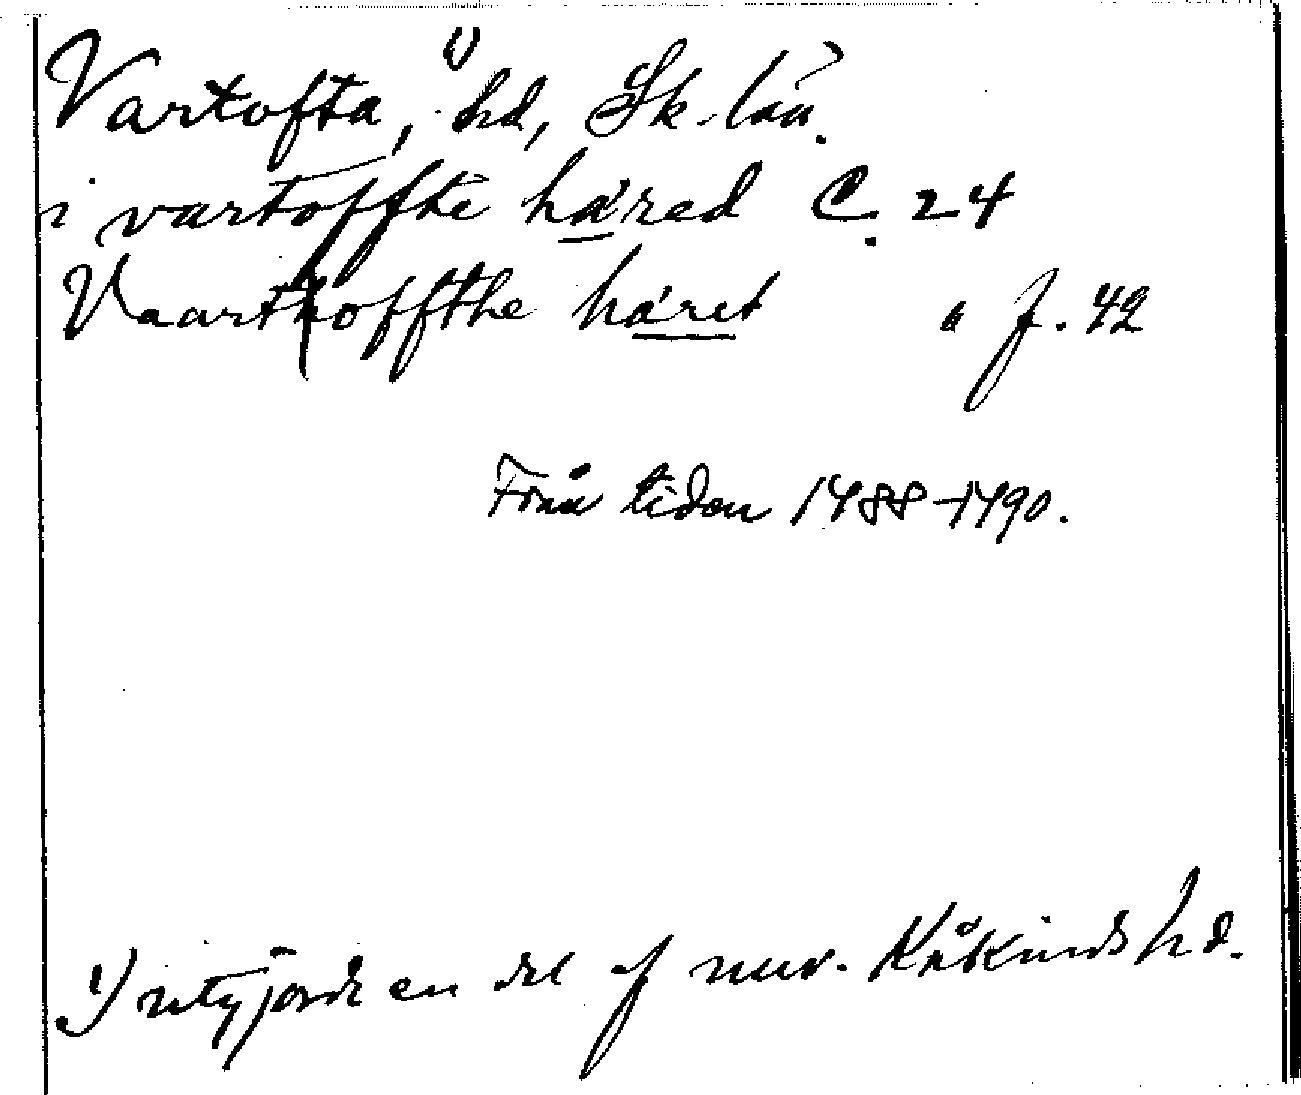 Vartofta, 1) hd, Sk-län.
i vartoffte häred C. 24
Vaarthoffthe häret " f. 42
Från tiden 1488-1490.
1) utgjorde en del af nuv. Kåkinds hd.